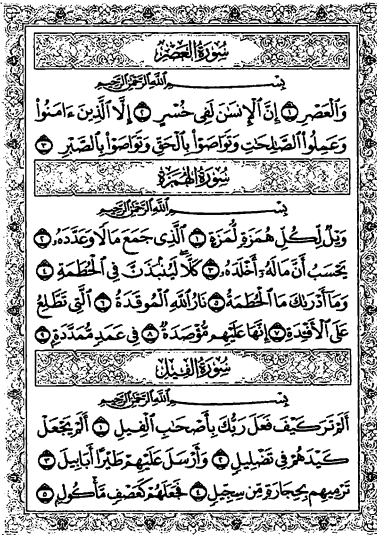 سُورَةُ العَصْرِ
بِسْمِ اللَّهِ الرَّحْمَٰنِ الرَّحِيمِ
وَالْعَصْرِ ۝١ إِنَّ الْإِنسَٰنَ لَفِي خُسْرٍ ۝٢ إِلَّا الَّذِينَ ءَامَنُوا۟
وَعَمِلُوا۟ الصَّٰلِحَٰتِ وَتَوَاصَوْا۟ بِالْحَقِّ وَتَوَاصَوْا۟ بِالصَّبْرِ ۝٣
سُورَةُ الهُمَزَةِ
بِسْمِ اللَّهِ الرَّحْمَٰنِ الرَّحِيمِ
وَيْلٌ لِّكُلِّ هُمَزَةٍ لُّمَزَةٍ ۝١ الَّذِي جَمَعَ مَالًا وَعَدَّدَهُۥ ۝٢
يَحْسَبُ أَنَّ مَالَهُۥٓ أَخْلَدَهُۥ ۝٣ كَلَّا ۖ لَيُنۢبَذَنَّ فِي الْحُطَمَةِ ۝٤
وَمَآ أَدْرَىٰكَ مَا الْحُطَمَةُ ۝٥ نَارُ اللَّهِ الْمُوقَدَةُ ۝٦ الَّتِي تَطَّلِعُ
عَلَى الْأَفْـِٔدَةِ ۝٧ إِنَّهَا عَلَيْهِم مُّؤْصَدَةٌ ۝٨ فِي عَمَدٍ مُّمَدَّدَةٍۭ ۝٩
سُورَةُ الفِيلِ
بِسْمِ اللَّهِ الرَّحْمَٰنِ الرَّحِيمِ
أَلَمْ تَرَ كَيْفَ فَعَلَ رَبُّكَ بِأَصْحَٰبِ الْفِيلِ ۝١ أَلَمْ يَجْعَلْ
كَيْدَهُمْ فِي تَضْلِيلٍ ۝٢ وَأَرْسَلَ عَلَيْهِمْ طَيْرًا أَبَابِيلَ ۝٣
تَرْمِيهِم بِحِجَارَةٍ مِّن سِجِّيلٍ ۝٤ فَجَعَلَهُمْ كَعَصْفٍ مَّأْكُولٍۭ ۝٥